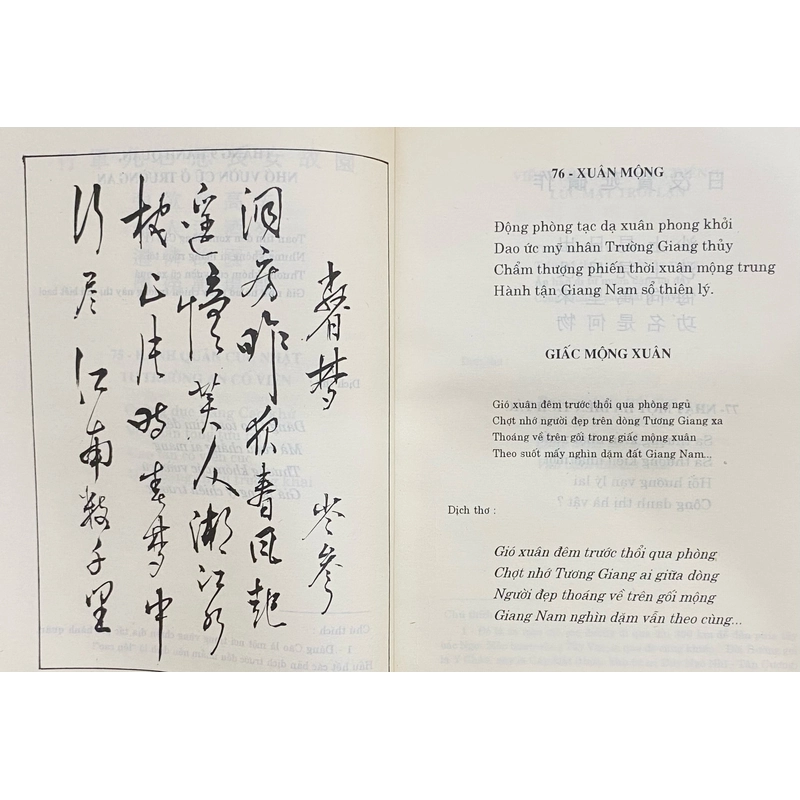 春夢 岑參
洞房昨夜春風起
遥憶美人湘江水
枕上片時春夢中
行盡江南數千里
76 - XUÂN MỘNG
Động phòng tạc dạ xuân phong khởi
Dao ức mỹ nhân Trường Giang thủy
Chẩm thượng phiến thời xuân mộng trung
Hành tận Giang Nam sổ thiên lý.
GIẤC MỘNG XUÂN
Gió xuân đêm trước thổi qua phòng ngủ
Chợt nhớ người đẹp trên dòng Tương Giang xa
Thoáng về trên gối trong giấc mộng xuân
Theo suốt mấy nghìn dặm đất Giang Nam...
Dịch thơ :
Gió xuân đêm trước thổi qua phòng
Chợt nhớ Tương Giang ai giữa dòng
Người đẹp thoáng về trên gối mộng
Giang Nam nghìn dặm vẫn theo cùng...